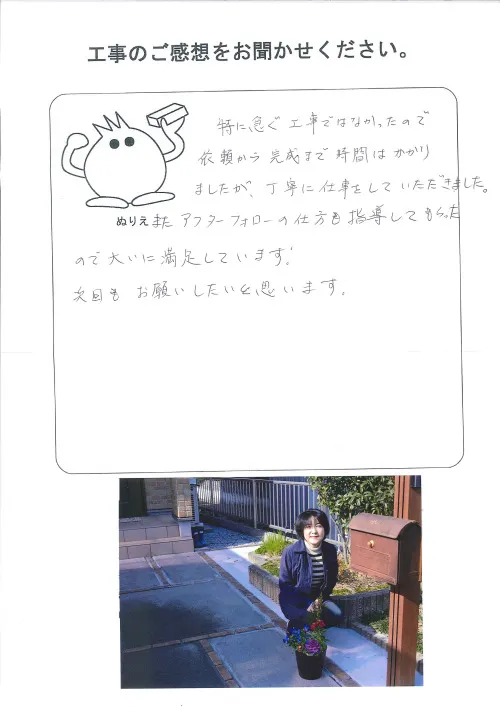 工事のご感想をお聞かせください。
特に急ぐ工事ではなかったので
依頼から完成まで時間はかかり
ましたが、丁寧に仕事をしていただきました。
ぬりえ
また アフターフォローの仕方も指導してもらった
ので大いに満足しています！
次回も お願いしたいと思います。